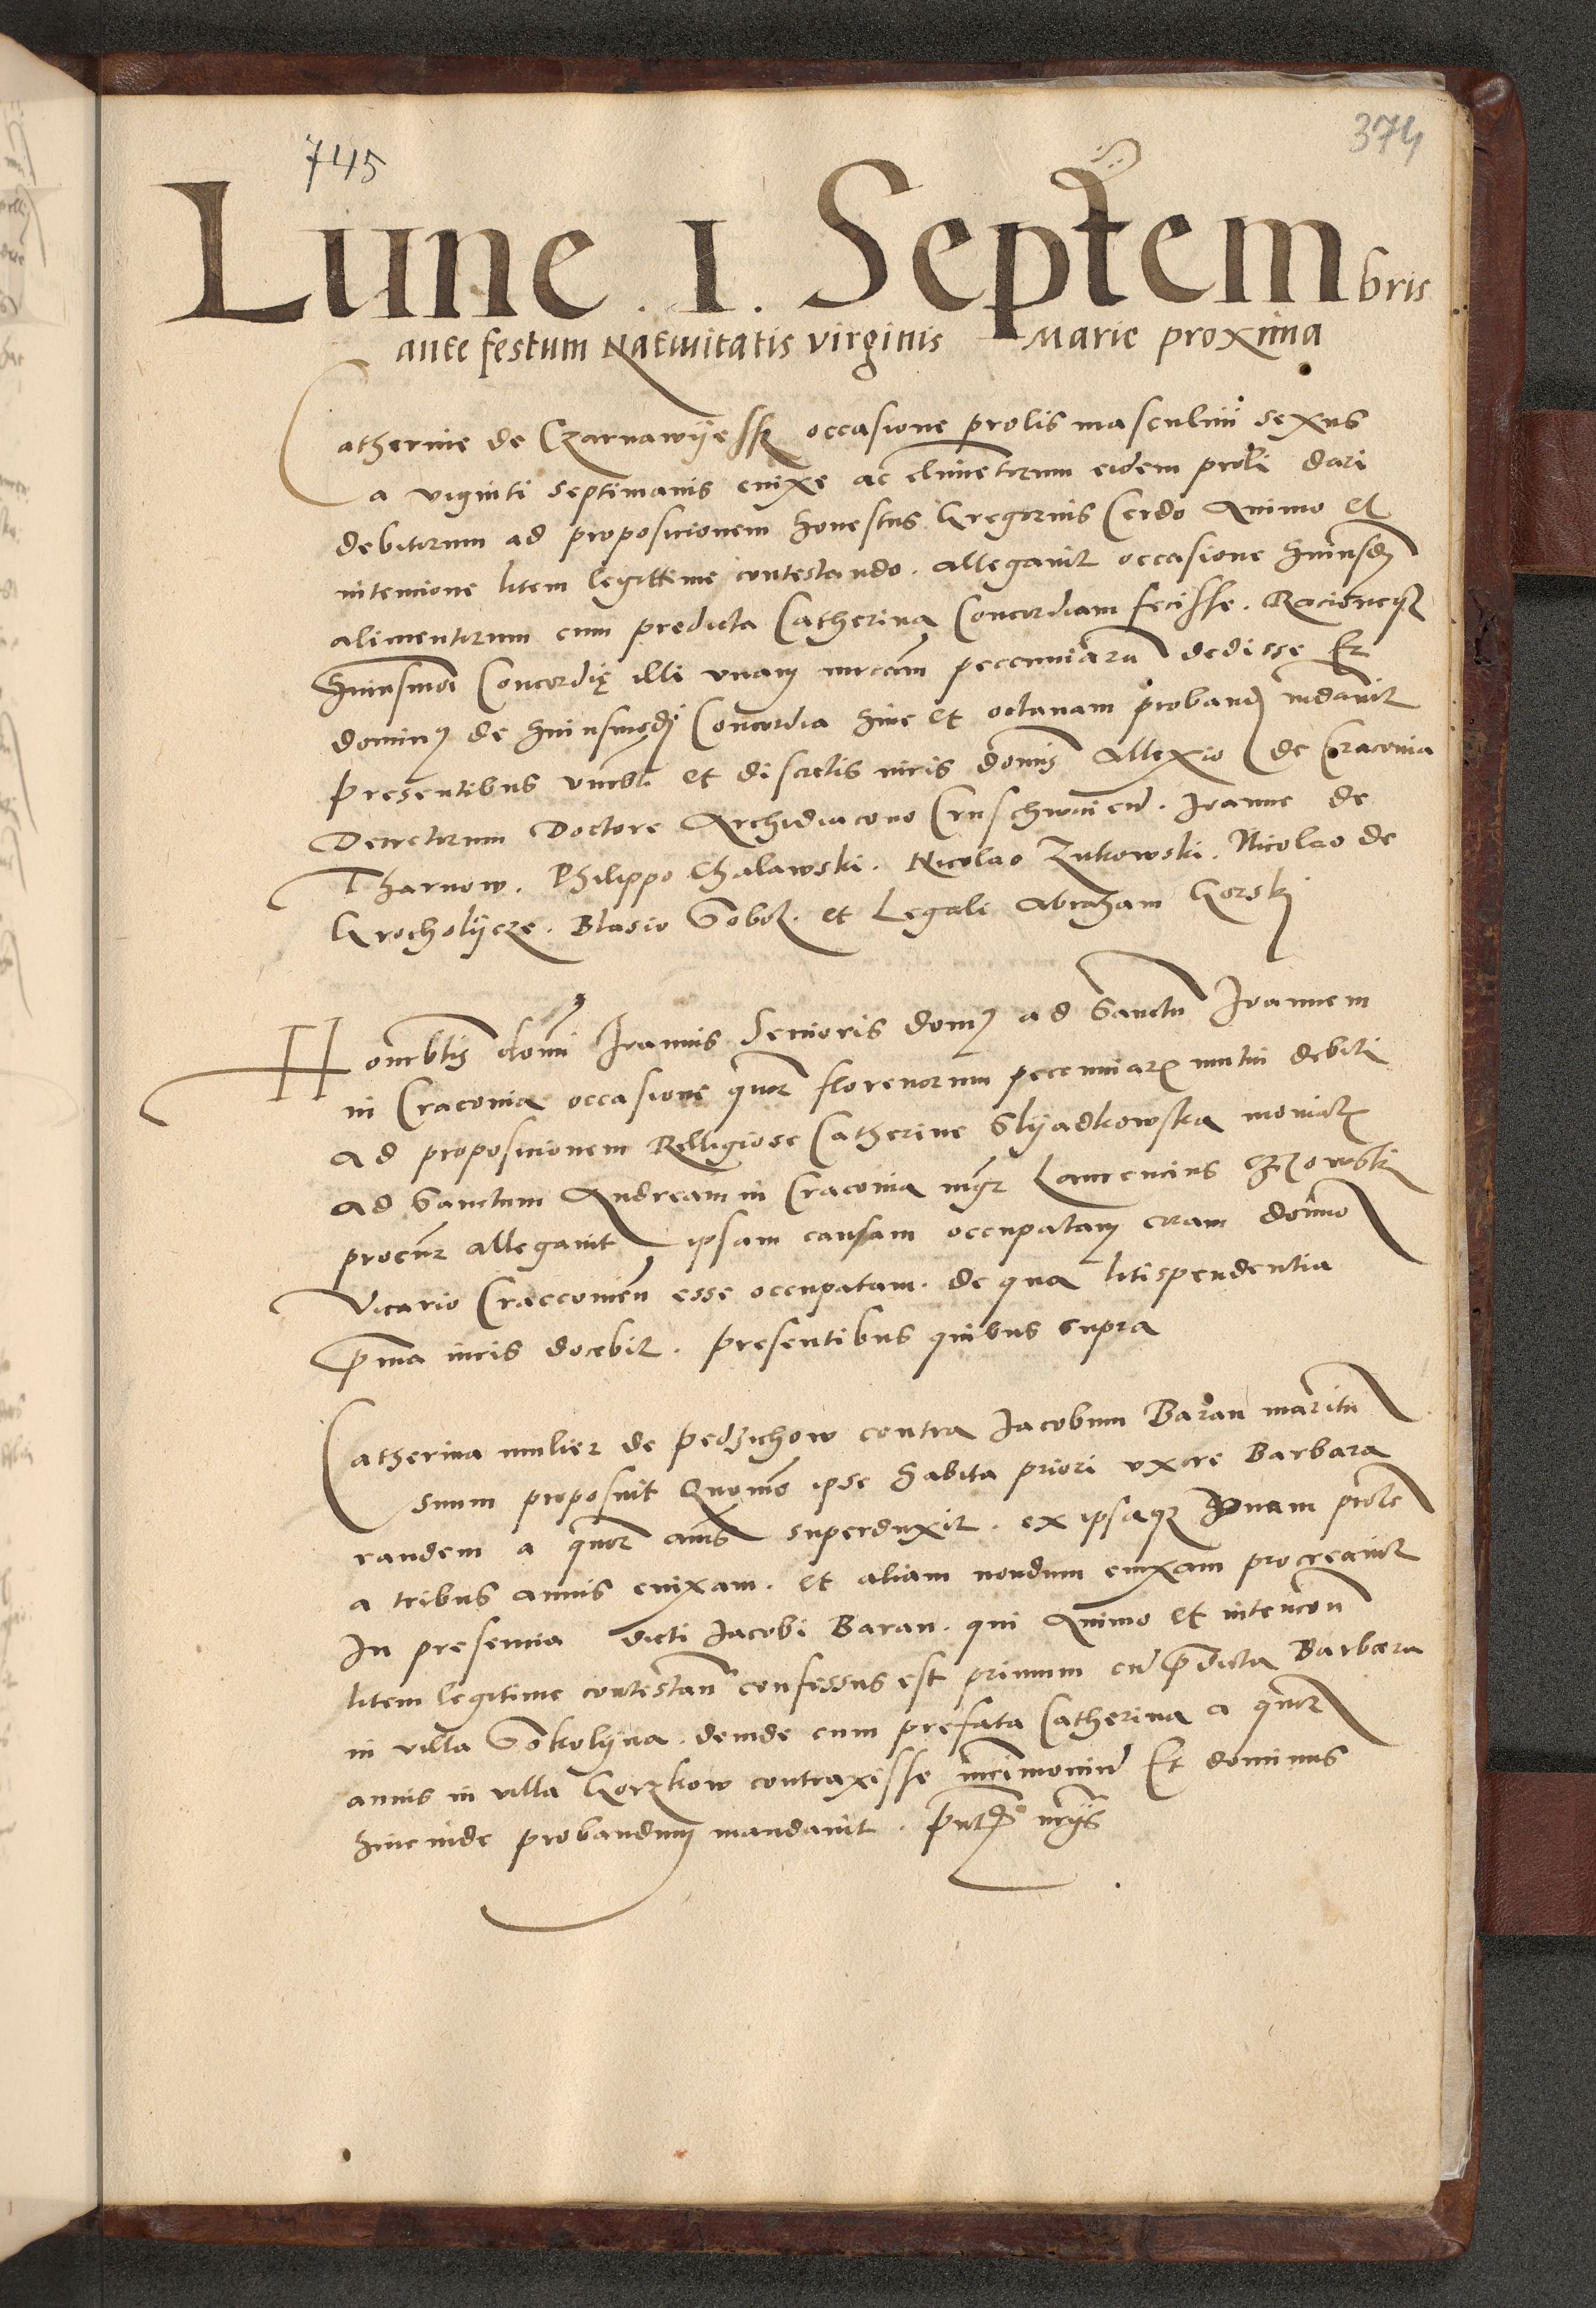 745
374
Lune . 1 . Septembris
ante festum Nativitatis virginis Marie proxima
Catherine de Czarnawyessk occasione prolis masculini sexus
a viginti septimanis enixe ac elimetorum eidem proli dari
debitorum ad proposicionem honestus Gregorius Cerdo Animo et
intencione litem legittime contestando . allegavit occasione huiusdi
alimentorum cum predicta Catherina Concordiam fecisse . Racioneqz
huiusmoi Concordię illi unam mrcam peccuniaru dedisse Et
dominus de huiusmodi Concordia hinc et octavam proband mdavit
presentibus venebli et discretis viris domis Allexio de Cracovia
Decretorum Doctore Archidiacono Cruschwicien . Ioanne de
Tharnow . Philippo Chalawski . Nicolao Zukowski . Nicolao de
Krocholycze . Blasio Sobol . et Legali Abraham Gorski
Honoreblis domi Ioannis Senioris domus ad Sanctu Ioannem
in Cracovia occasione quor florenorum peccuniarz mutui debiti
ad proposicionem Relligiose Catherine Slyadkowska monialz
ad Sanctum Andream in Cracovia mgr Laurencius
procur allegavit ipsam causam occupatam coram domno
Vicario Craccovien esse occupatam . de qua litispendentia
prima iuris docebit . presentibus quibus supra
Catherina mulier de Pedzichow contra Iacobum Baran maritu
suum proposuit Quomo ipse habita priori uxore Barbara
eandem a quor anis superduxit . ex ipsaqz unam prole
a tribus annis enixam . et aliam nondum enixam procreavit
In presencia dicti Iacobi Baran . qui Animo et intencon
litem legitime contestan confessus est primum cu predicta Barbara
in villa Sokolyna . deinde cum prefata Catherina a quor
annis in villa Gorzkow contraxisse mrimoniu Et dominus
hincinde probandum mandavit . pntibs